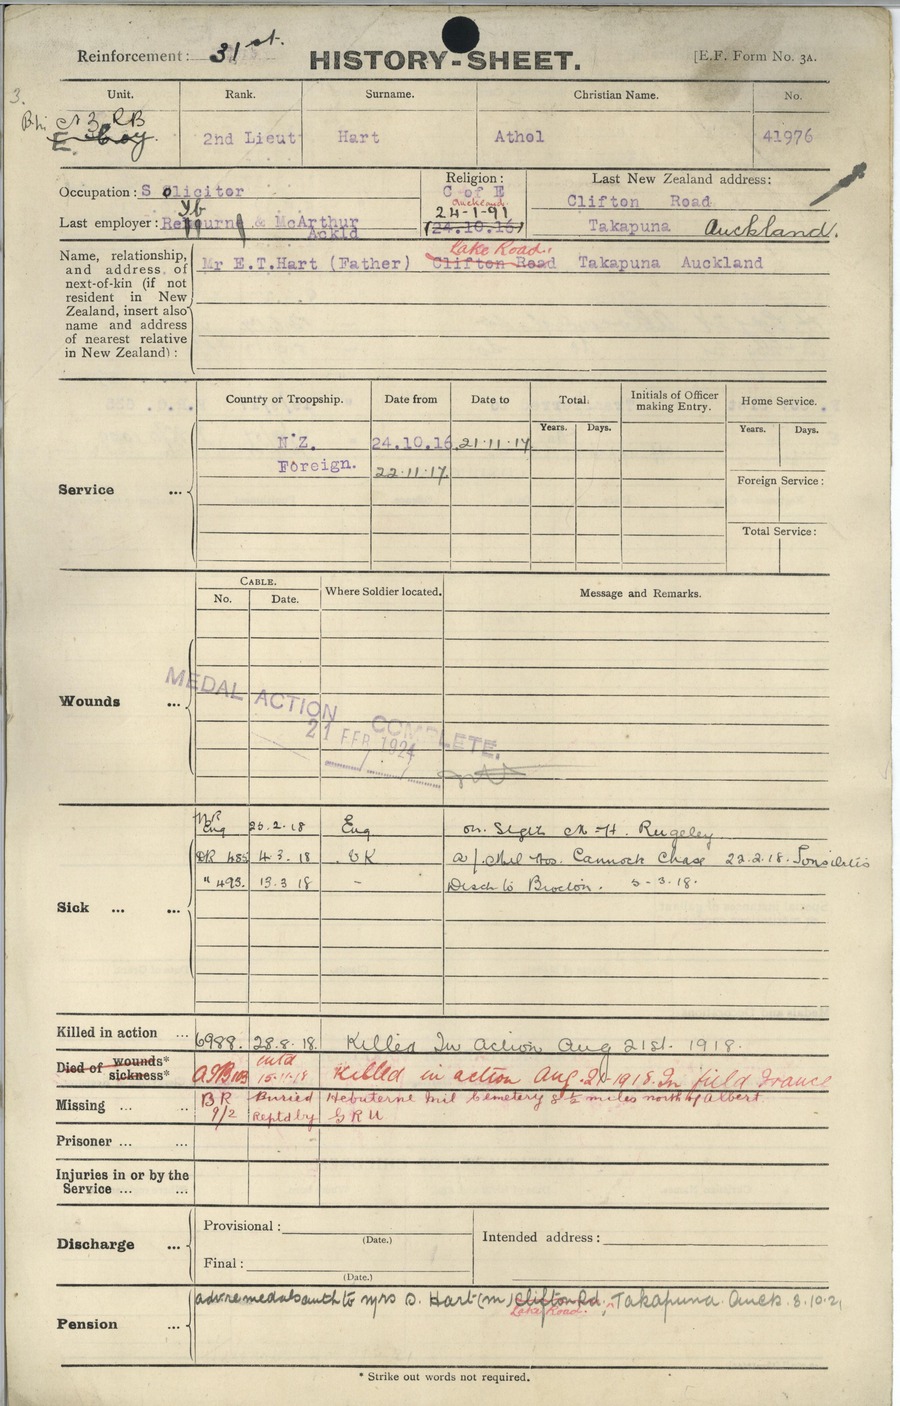 Reinforcement: 31st.
HISTORY-SHEET.
[E.F. Form No. 3A.
3.
Unit. Rank. Surname. Christian Name. No.
3 RB
E. Coy
2nd Lieut Hart Athol 41976
Occupation: Solicitor
Religion:
C of E
Auckland
24-1-91
(24.10.16)
Last New Zealand address:
Clifton Road
Takapuna Auckland.
Last employer: & McArthur
Ackld
Name, relationship, and address of next-of-kin (if not resident in New Zealand, insert also name and address of nearest relative in New Zealand):
Lake Road.
Mr E.T.Hart (Father) Clifton Road Takapuna Auckland
Service ...
Country or Troopship. Date from Date to Total. Initials of Officer making Entry. Home Service.
Years. Days. Years. Days.
N.Z. 24.10.16 21.11.17
Foreign. 22.11.17
Foreign Service:
Total Service:
Wounds ...
CABLE.
No. Date. Where Soldier located. Message and Remarks.
MEDAL ACTION COMPLETE.
21 FEB 1924
Sick ... ...
Eng 2.18 Eng M H. Rugeley
DR 485 4.3.18 UK a/ Mil Hos. Cannock Chase 22.2.18. Tonsilitis
" 493. 13.3.18 - Disch to Brocton. 5-3.18.
Killed in action ... 6988. 28.8.18. Killed In Action Aug 21st. 1918.
Died of wounds* sickness* 15.11.18 Killed in action Aug. 21-1918. In field France
Missing ... ... BR 9/2 Buried Hebuterne Mil Cemetery 8½ miles north of Albert
Reptd by GRU
Prisoner ... ...
Injuries in or by the Service ... ...
Discharge ...
Provisional: (Date.)
Final: (Date.)
Intended address:
Pension ...
adv re medals auth to Mrs D. Hart (m) Clifton Rd, Takapuna Auck. 8.10.21
Lake Road.
* Strike out words not required.